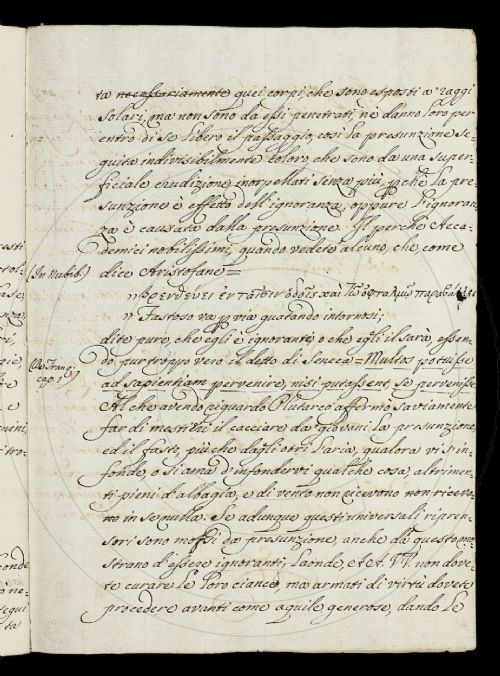 ta necessariamente quei corpi, che sono esposti a' raggi
solari, ma non sono da essi penetrati, nè danno loro per
entro di se libero il passaggio, così la presunzione se-
guita indivisibilmente coloro, che sono da una super-
ficiale erudizione inorpellati senza più, pchè la pre-
sunzione è effetto dell'ignoranza, oppure l'ignoran-
za è causata dalla presunzione. Il perchè Acca-
demici nobilissimi, quando vedete alcuno, che, come
(In nubib.)
dice Aristofane =
η Fastoso va p via guatando intornosi;
dite pure, che egli è ignorante, o che egli il sarà, essen-
do pur troppo vero il detto di Seneca = Multos potuisse
(De Tranq. cap. 1)
ad sapientiam pervenire, nisi putassent, se pervenisse
Al che avendo riguardo Plutarco affermò saviamente
far di mestieri il cacciare da' giovani la presunzione,
ed il fasto, più che dagli otri l'aria, qualora vi s'in-
fonde, o si ama d'infondervi qualche cosa, altrimen-
ti pieni d'albagia, e di vento non ricevono non ricevo-
no in se nulla. Se adunque questi universali ripren-
sori sono mossi da presunzione, anche da questo mo-
strano di essere ignoranti; Laonde, A A. VV. non dove-
te curare le loro ciance, ma armati di virtù dovete
procedere avanti come aquile generose, dando le